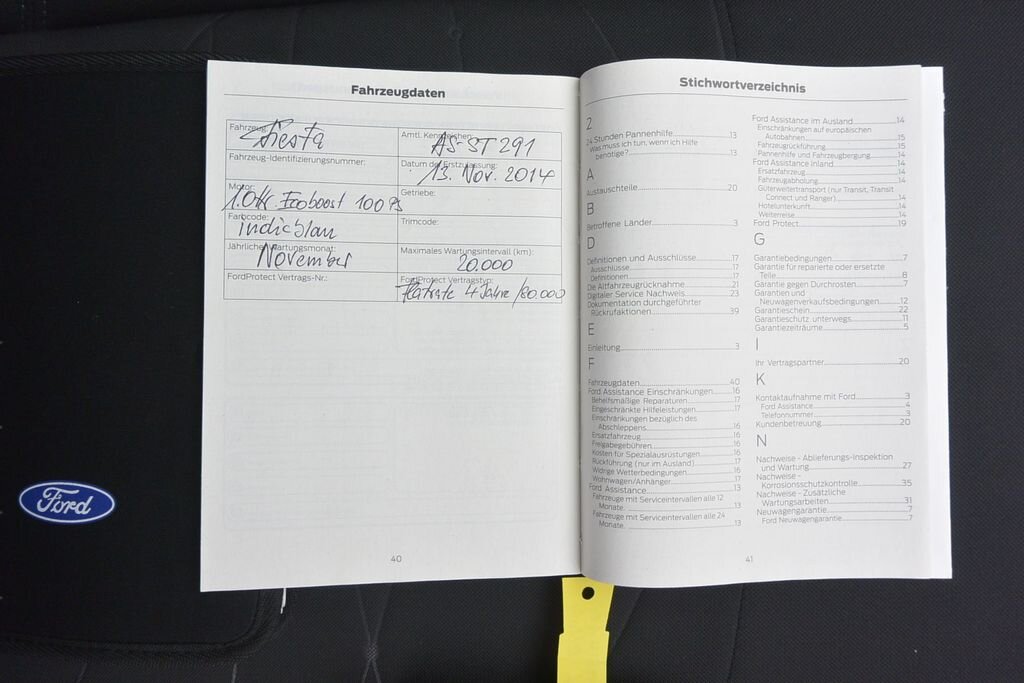 Fahrzeugdaten
Fahrzeug:
Fiesta
Amtl. Kennzeichen:
AS-ST 291
Fahrzeug-Identifizierungsnummer:
Datum der Erstzulassung:
13. Nov. 2014
Motor:
1.0 ltr. Ecoboost 100 PS
Getriebe:
Farbcode:
indicblau
Trimcode:
Jährlicher Wartungsmonat:
November
Maximales Wartungsintervall (km):
20.000
FordProtect Vertrags-Nr.:
FordProtect Vertragstyp:
Flatrate 4 Jahre/80.000
40
Stichwortverzeichnis
2
24 Stunden Pannenhilfe 13
Was muss ich tun, wenn ich Hilfe
benötige? 13
A
Austauschteile 20
B
Betroffene Länder 3
D
Definitionen und Ausschlüsse 17
Ausschlüsse 17
Definitionen 17
Die Altfahrzeugrücknahme 21
Digitaler Service Nachweis 23
Dokumentation durchgeführter
Rückrufaktionen 39
E
Einleitung 3
F
Fahrzeugdaten 40
Ford Assistance Einschränkungen 16
Behelfsmäßige Reparaturen 17
Eingeschränkte Hilfeleistungen 17
Einschränkungen bezüglich des
Abschleppens 16
Ersatzfahrzeug 16
Freigabegebühren 16
Kosten für Spezialausrüstungen 16
Rückführung (nur im Ausland) 17
Widrige Wetterbedingungen 16
Wohnwagen/Anhänger 17
Ford Assistance 13
Fahrzeuge mit Serviceintervallen alle 12
Monate 13
Fahrzeuge mit Serviceintervallen alle 24
Monate 13
Ford Assistance im Ausland 14
Einschränkungen auf europäischen
Autobahnen 15
Fahrzeugrückführung 15
Pannenhilfe und Fahrzeugbergung 14
Ford Assistance Inland 14
Ersatzfahrzeug 14
Fahrzeugabholung 14
Güterweitertransport (nur Transit, Transit
Connect und Ranger) 14
Hotelunterkunft 14
Weiterreise 14
Ford Protect 19
G
Garantiebedingungen 7
Garantie für reparierte oder ersetzte
Teile 8
Garantie gegen Durchrosten 7
Garantien und
Neuwagenverkaufsbedingungen 12
Garantieschein 22
Garantieschutz unterwegs 11
Garantiezeiträume 5
I
Ihr Vertragspartner 20
K
Kontaktaufnahme mit Ford 3
Ford Assistance 4
Telefonnummer 3
Kundenbetreuung 20
N
Nachweise - Ablieferungs-Inspektion
und Wartung 27
Nachweise -
Korrosionsschutzkontrolle 35
Nachweise - Zusätzliche
Wartungsarbeiten 31
Neuwagengarantie 7
Ford Neuwagengarantie 7
41
Ford